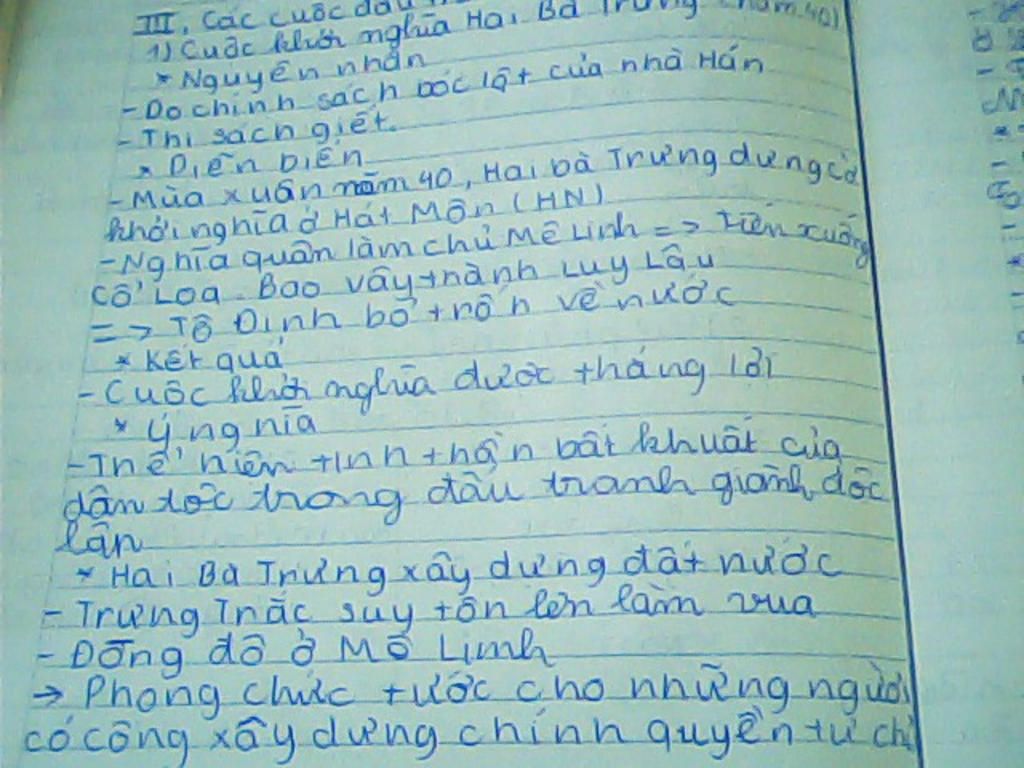 III, Các cuộc đấu
1) Cuộc khởi nghĩa Hai Bà Trưng (năm 40)
* Nguyên nhân
- Do chính sách bóc lột của nhà Hán
- Thi sách giết.
* Diễn biến
- Mùa xuân năm 40, Hai bà Trưng dựng cờ
khởi nghĩa ở Hát Môn (HN)
- Nghĩa quân làm chủ Mê Linh => tiến xuống
Cổ Loa. Bao vây thành Luy Lâu
=> Tô Định bỏ trốn về nước
* Kết quả
- Cuộc khởi nghĩa được thắng lợi
* Ý nghĩa
- Thể hiện tinh thần bất khuất của
dân tộc trong đấu tranh giành độc
lập
* Hai Bà Trưng xây dựng đất nước
- Trưng Trắc suy tôn lên làm vua
- Đóng đô ở Mê Linh
-> Phong chức tước cho những người
có công xây dựng chính quyền tự chủ